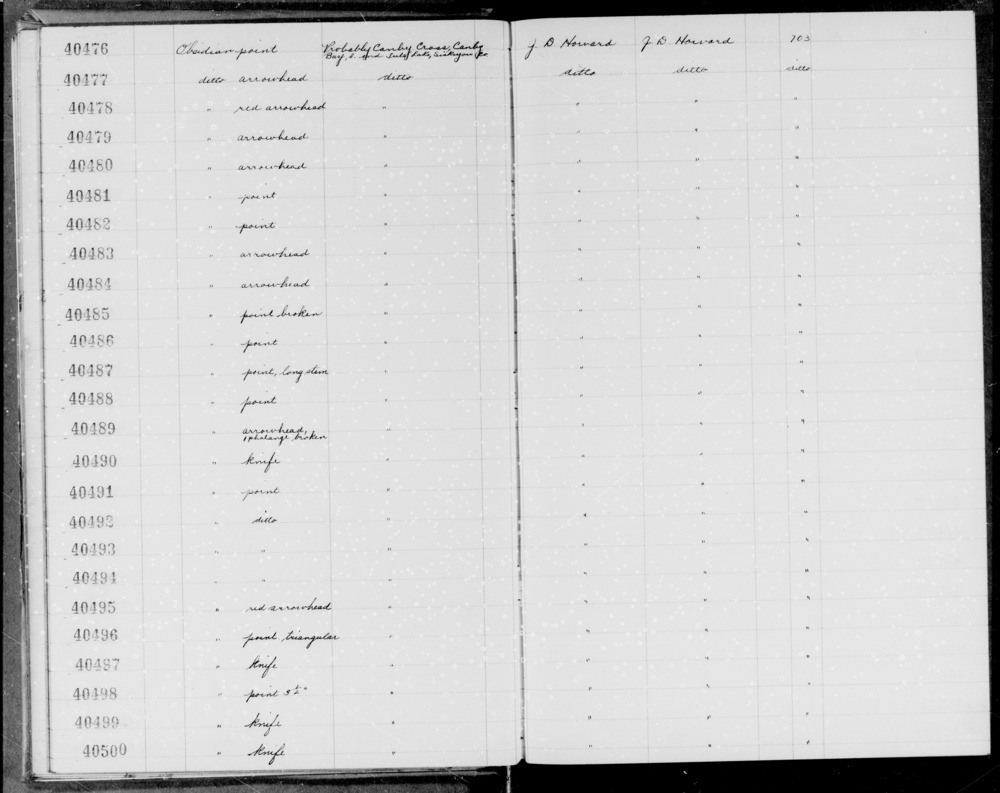 40476 Obsidian point Probably Canby Cross, Canby J. D. Howard J. D. Howard 703
Bay, S. end Tule Lake, Siskiyou Co
40477 ditto arrowhead ditto ditto ditto ditto
40478 " red arrowhead " " " "
40479 " arrowhead " " " "
40480 " arrowhead " " " "
40481 " point " " " "
40482 " point " " " "
40483 " arrowhead " " " "
40484 " arrowhead " " " "
40485 " point broken " " " "
40486 " point " " " "
40487 " point, long stem " " " "
40488 " point " " " "
40489 " arrowhead, " " " "
1 phalange broken
40490 " knife " " " "
40491 " point " " " "
40492 " ditto " " " "
40493 " " " " " "
40494 " " " " " "
40495 " red arrowhead " " " "
40496 " point, triangular " " " "
40497 " knife " " " "
40498 " point 3½" " " " "
40499 " knife " " " "
40500 " knife " " " "